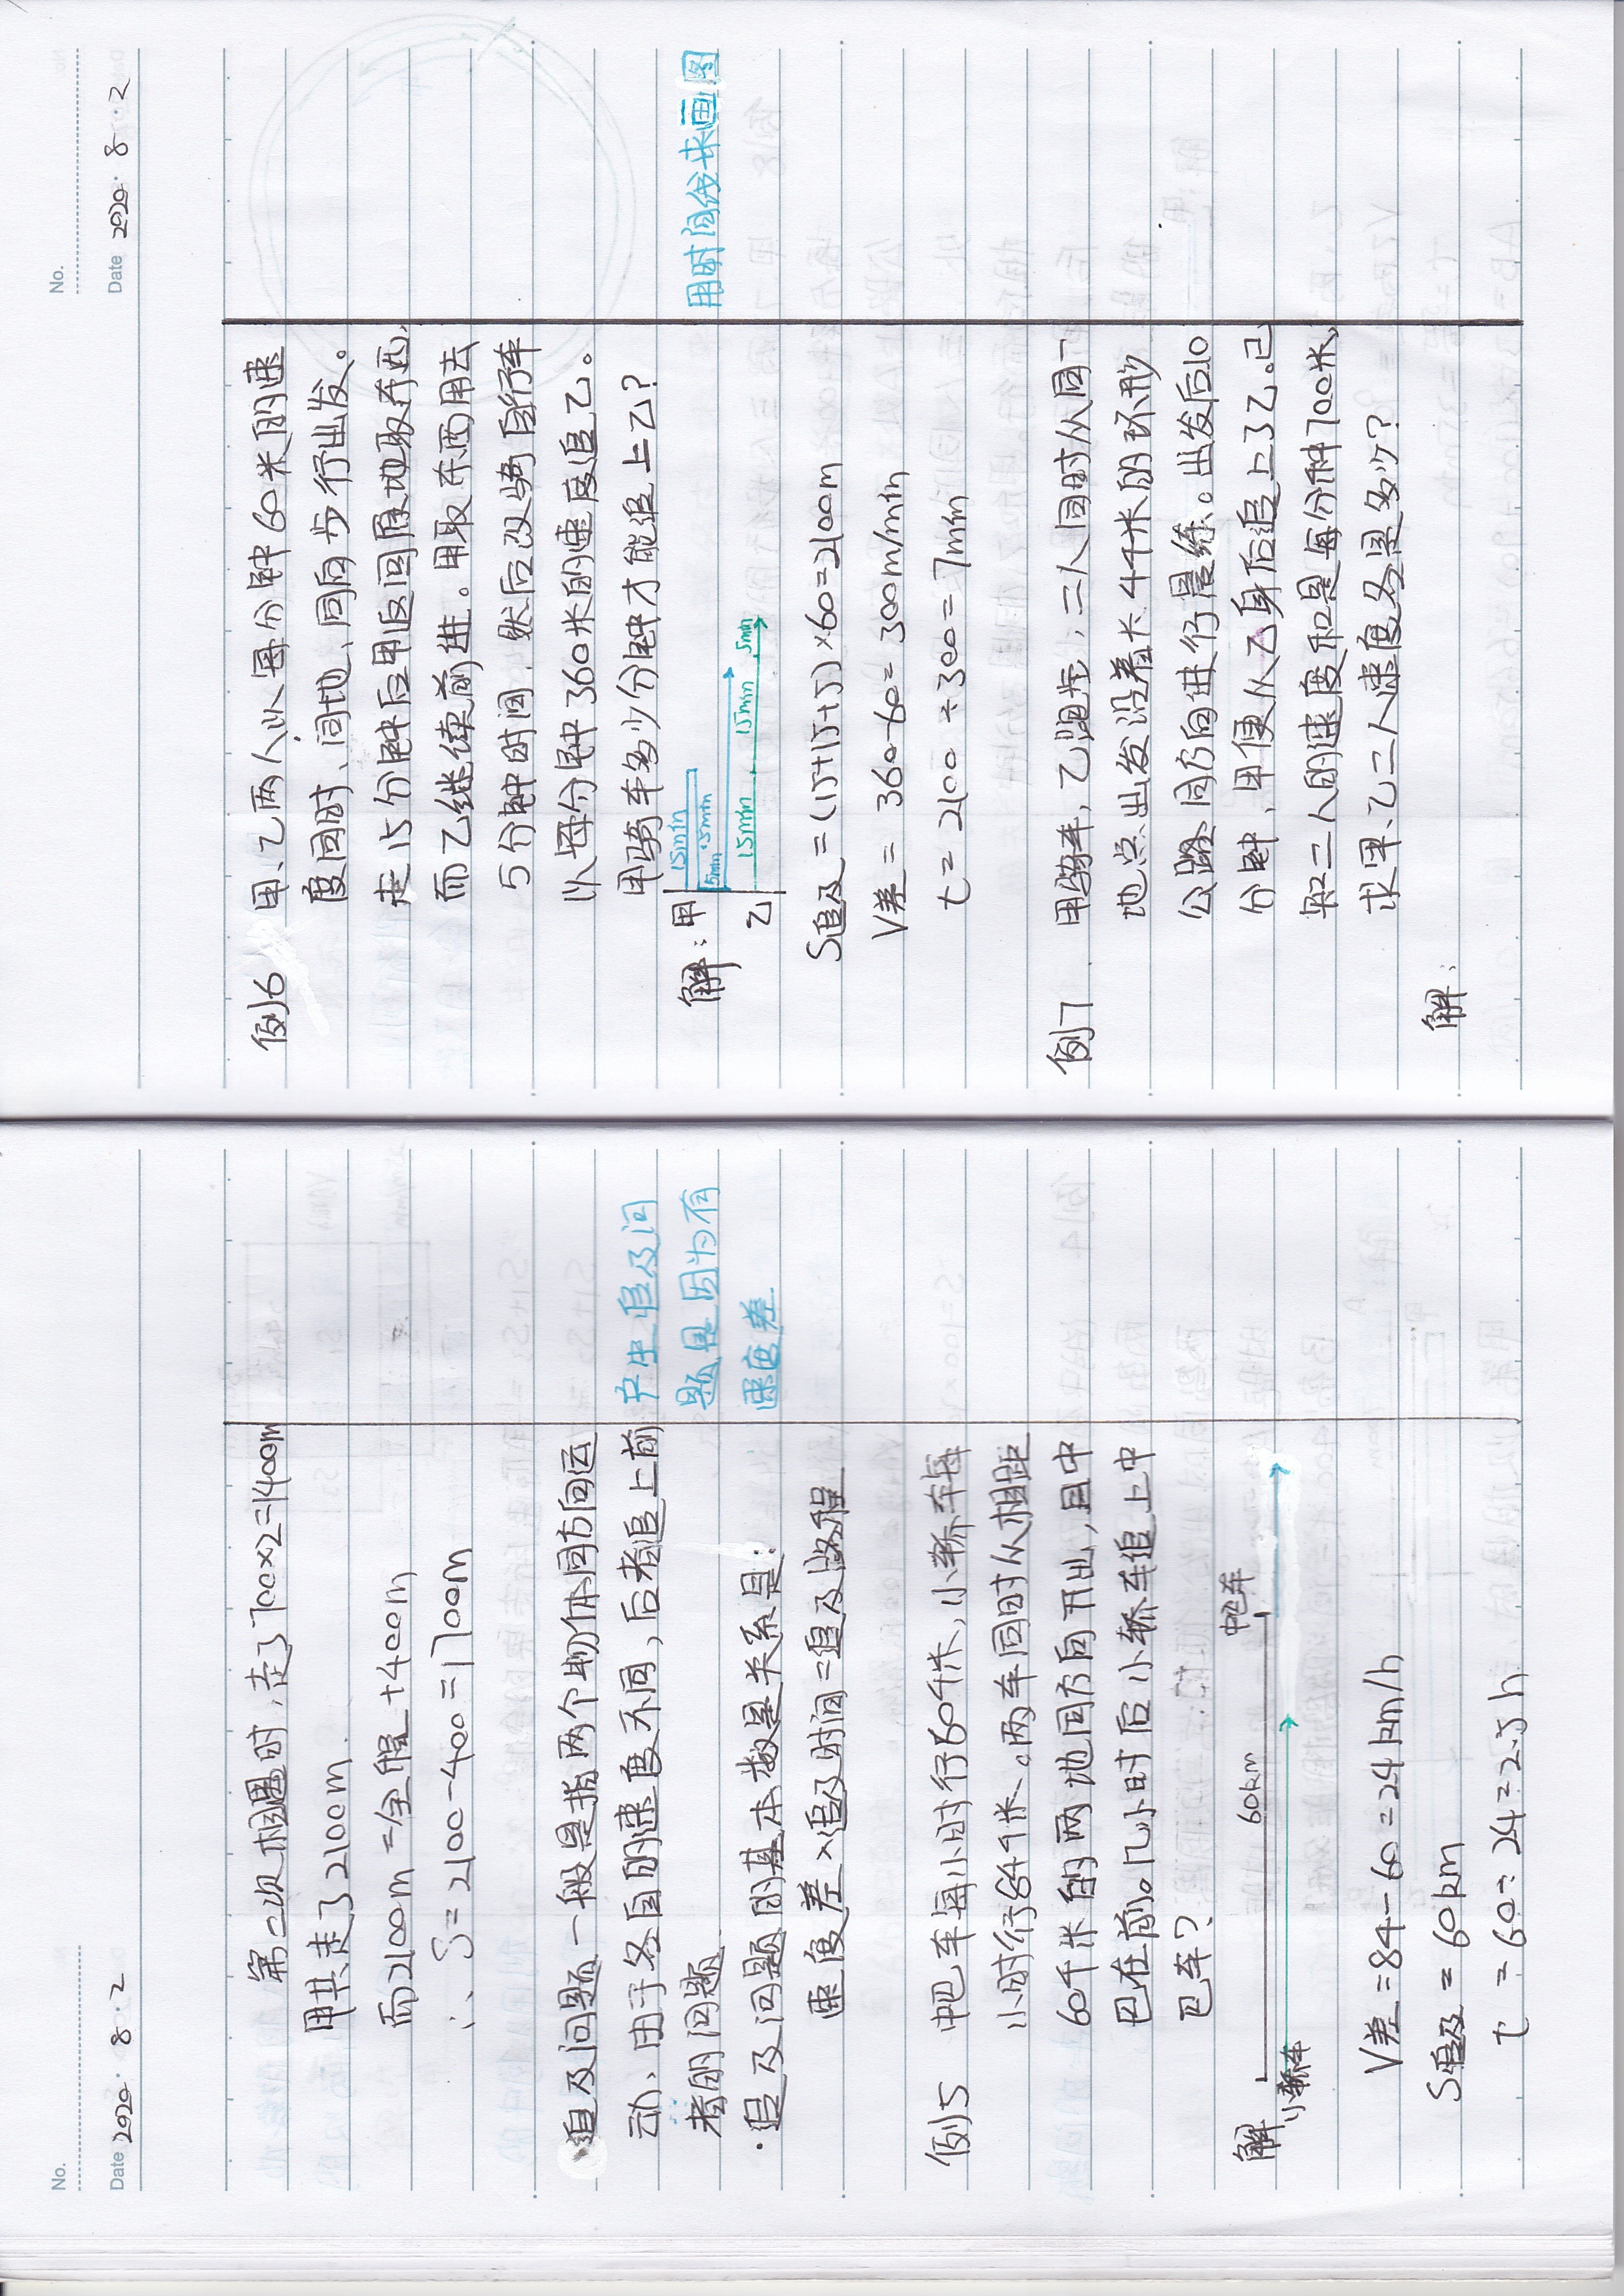 No.
Date 2020·8·2
第二次相遇时,走了700×2=1400m
甲共走了2100m.
而2100m=全程+400m
∴ S=2100-400=1700m
追及问题一般是指两个物体同方向运
动,由于各自的速度不同,后者追上前
者的问题
·追及问题的基本数量关系是:
速度差×追及时间=追及路程
产生追及问
题是因为有
速度差
例5 中巴车每小时行60千米,小轿车每
小时行84千米。两车同时从相距
60千米的两地同方向开出,且中
巴在前。几小时后小轿车追上中
巴车?
解
60km
中巴车
小轿车
V差=84-60=24km/h
S追及=60km
t=60÷24=2.5h
No.
Date 2020·8·2
例6 甲、乙两人以每分钟60米的速
度同时、同地、同向步行出发。
走15分钟后甲返回原地取东西,
而乙继续前进。甲取东西用去
5分钟时间,然后改骑自行车
以每分钟360米的速度追乙。
甲骑车多少分钟才能追上乙?
用时间线来画图
解:甲
15min
5min·5min
乙
15min 15min 5min
S追及=(15+15+5)×60=2100m
V差=360-60=300m/min
t=2100÷300=7min
例7 甲骑车,乙跑步,二人同时从同一
地点出发沿着长4千米的环形
公路同方向进行晨练。出发后10
分钟,甲便从乙身后追上了乙。已
知二人的速度和是每分种700米,
求甲、乙二人速度各是多少?
解: